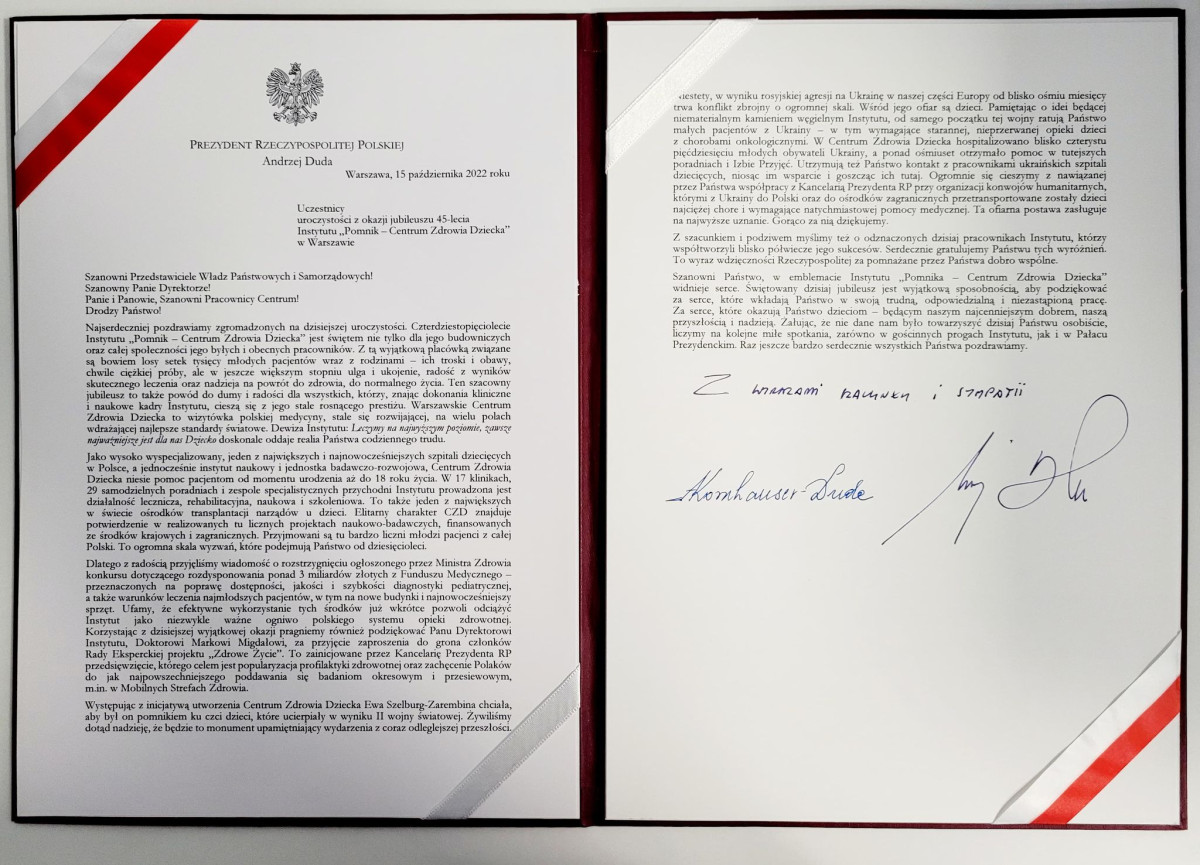 PREZYDENT RZECZYPOSPOLITEJ POLSKIEJ
Andrzej Duda
Warszawa, 15 października 2022 roku
Uczestnicy
uroczystości z okazji jubileuszu 45-lecia
Instytutu „Pomnik – Centrum Zdrowia Dziecka”
w Warszawie
Szanowni Przedstawiciele Władz Państwowych i Samorządowych!
Szanowny Panie Dyrektorze!
Panie i Panowie, Szanowni Pracownicy Centrum!
Drodzy Państwo!
Najserdeczniej pozdrawiamy zgromadzonych na dzisiejszej uroczystości. Czterdziestopięciolecie
Instytutu „Pomnik – Centrum Zdrowia Dziecka” jest świętem nie tylko dla jego budowniczych
oraz całej społeczności jego byłych i obecnych pracowników. Z tą wyjątkową placówką związane
są bowiem losy setek tysięcy młodych pacjentów wraz z rodzinami – ich troski i obawy,
chwile ciężkiej próby, ale w jeszcze większym stopniu ulga i ukojenie, radość z wyników
skutecznego leczenia oraz nadzieja na powrót do zdrowia, do normalnego życia. Ten szacowny
jubileusz to także powód do dumy i radości dla wszystkich, którzy, znając dokonania kliniczne
i naukowe kadry Instytutu, cieszą się z jego stale rosnącego prestiżu. Warszawskie Centrum
Zdrowia Dziecka to wizytówka polskiej medycyny, stale się rozwijającej, na wielu polach
wdrażającej najlepsze standardy światowe. Dewiza Instytutu: Leczymy na najwyższym poziomie, zawsze
najważniejsze jest dla nas Dziecko doskonale oddaje realia Państwa codziennego trudu.
Jako wysoko wyspecjalizowany, jeden z największych i najnowocześniejszych szpitali dziecięcych
w Polsce, a jednocześnie instytut naukowy i jednostka badawczo-rozwojowa, Centrum Zdrowia
Dziecka niesie pomoc pacjentom od momentu urodzenia aż do 18 roku życia. W 17 klinikach,
29 samodzielnych poradniach i zespole specjalistycznych przychodni Instytutu prowadzona jest
działalność lecznicza, rehabilitacyjna, naukowa i szkoleniowa. To także jeden z największych
w świecie ośrodków transplantacji narządów u dzieci. Elitarny charakter CZD znajduje
potwierdzenie w realizowanych tu licznych projektach naukowo-badawczych, finansowanych
ze środków krajowych i zagranicznych. Przyjmowani są tu bardzo liczni młodzi pacjenci z całej
Polski. To ogromna skala wyzwań, które podejmują Państwo od dziesięcioleci.
Dlatego z radością przyjęliśmy wiadomość o rozstrzygnięciu ogłoszonego przez Ministra Zdrowia
konkursu dotyczącego rozdysponowania ponad 3 miliardów złotych z Funduszu Medycznego –
przeznaczonych na poprawę dostępności, jakości i szybkości diagnostyki pediatrycznej,
a także warunków leczenia najmłodszych pacjentów, w tym na nowe budynki i najnowocześniejszy
sprzęt. Ufamy, że efektywne wykorzystanie tych środków już wkrótce pozwoli odciążyć
Instytut jako niezwykle ważne ogniwo polskiego systemu opieki zdrowotnej.
Korzystając z dzisiejszej wyjątkowej okazji pragniemy również podziękować Panu Dyrektorowi
Instytutu, Doktorowi Markowi Migdałowi, za przyjęcie zaproszenia do grona członków
Rady Eksperckiej projektu „Zdrowe Życie”. To zainicjowane przez Kancelarię Prezydenta RP
przedsięwzięcie, którego celem jest popularyzacja profilaktyki zdrowotnej oraz zachęcenie Polaków
do jak najpowszechniejszego poddawania się badaniom okresowym i przesiewowym,
m.in. w Mobilnych Strefach Zdrowia.
Występując z inicjatywą utworzenia Centrum Zdrowia Dziecka Ewa Szelburg-Zarembina chciała,
aby był on pomnikiem ku czci dzieci, które ucierpiały w wyniku II wojny światowej. Żywiliśmy
dotąd nadzieję, że będzie to monument upamiętniający wydarzenia z coraz odleglejszej przeszłości.
Niestety, w wyniku rosyjskiej agresji na Ukrainę w naszej części Europy od blisko ośmiu miesięcy
trwa konflikt zbrojny o ogromnej skali. Wśród jego ofiar są dzieci. Pamiętając o idei będącej
niematerialnym kamieniem węgielnym Instytutu, od samego początku tej wojny ratują Państwo
małych pacjentów z Ukrainy – w tym wymagające starannej, nieprzerwanej opieki dzieci
z chorobami onkologicznymi. W Centrum Zdrowia Dziecka hospitalizowano blisko czterystu
pięćdziesięciu młodych obywateli Ukrainy, a ponad ośmiuset otrzymało pomoc w tutejszych
poradniach i Izbie Przyjęć. Utrzymują też Państwo kontakt z pracownikami ukraińskich szpitali
dziecięcych, niosąc im wsparcie i goszcząc ich tutaj. Ogromnie się cieszymy z nawiązanej
przez Państwa współpracy z Kancelarią Prezydenta RP przy organizacji konwojów humanitarnych,
którymi z Ukrainy do Polski oraz do ośrodków zagranicznych przetransportowane zostały dzieci
najciężej chore i wymagające natychmiastowej pomocy medycznej. Ta ofiarna postawa zasługuje
na najwyższe uznanie. Gorąco za nią dziękujemy.
Z szacunkiem i podziwem myślimy też o odznaczonych dzisiaj pracownikach Instytutu, którzy
współtworzyli blisko półwiecze jego sukcesów. Serdecznie gratulujemy Państwu tych wyróżnień.
To wyraz wdzięczności Rzeczypospolitej za pomnażane przez Państwa dobro wspólne.
Szanowni Państwo, w emblemacie Instytutu „Pomnika – Centrum Zdrowia Dziecka”
widnieje serce. Świętowany dzisiaj jubileusz jest wyjątkową sposobnością, aby podziękować
za serce, które wkładają Państwo w swoją trudną, odpowiedzialną i niezastąpioną pracę.
Za serce, które okazują Państwo dzieciom – będącym naszym najcenniejszym dobrem, naszą
przyszłością i nadzieją. Żałując, że nie dane nam było towarzyszyć dzisiaj Państwu osobiście,
liczymy na kolejne miłe spotkania, zarówno w gościnnych progach Instytutu, jak i w Pałacu
Prezydenckim. Raz jeszcze bardzo serdecznie wszystkich Państwa pozdrawiamy.
Z WYRAZAMI SZACUNKU I SYMPATII
AKornhauser-Duda